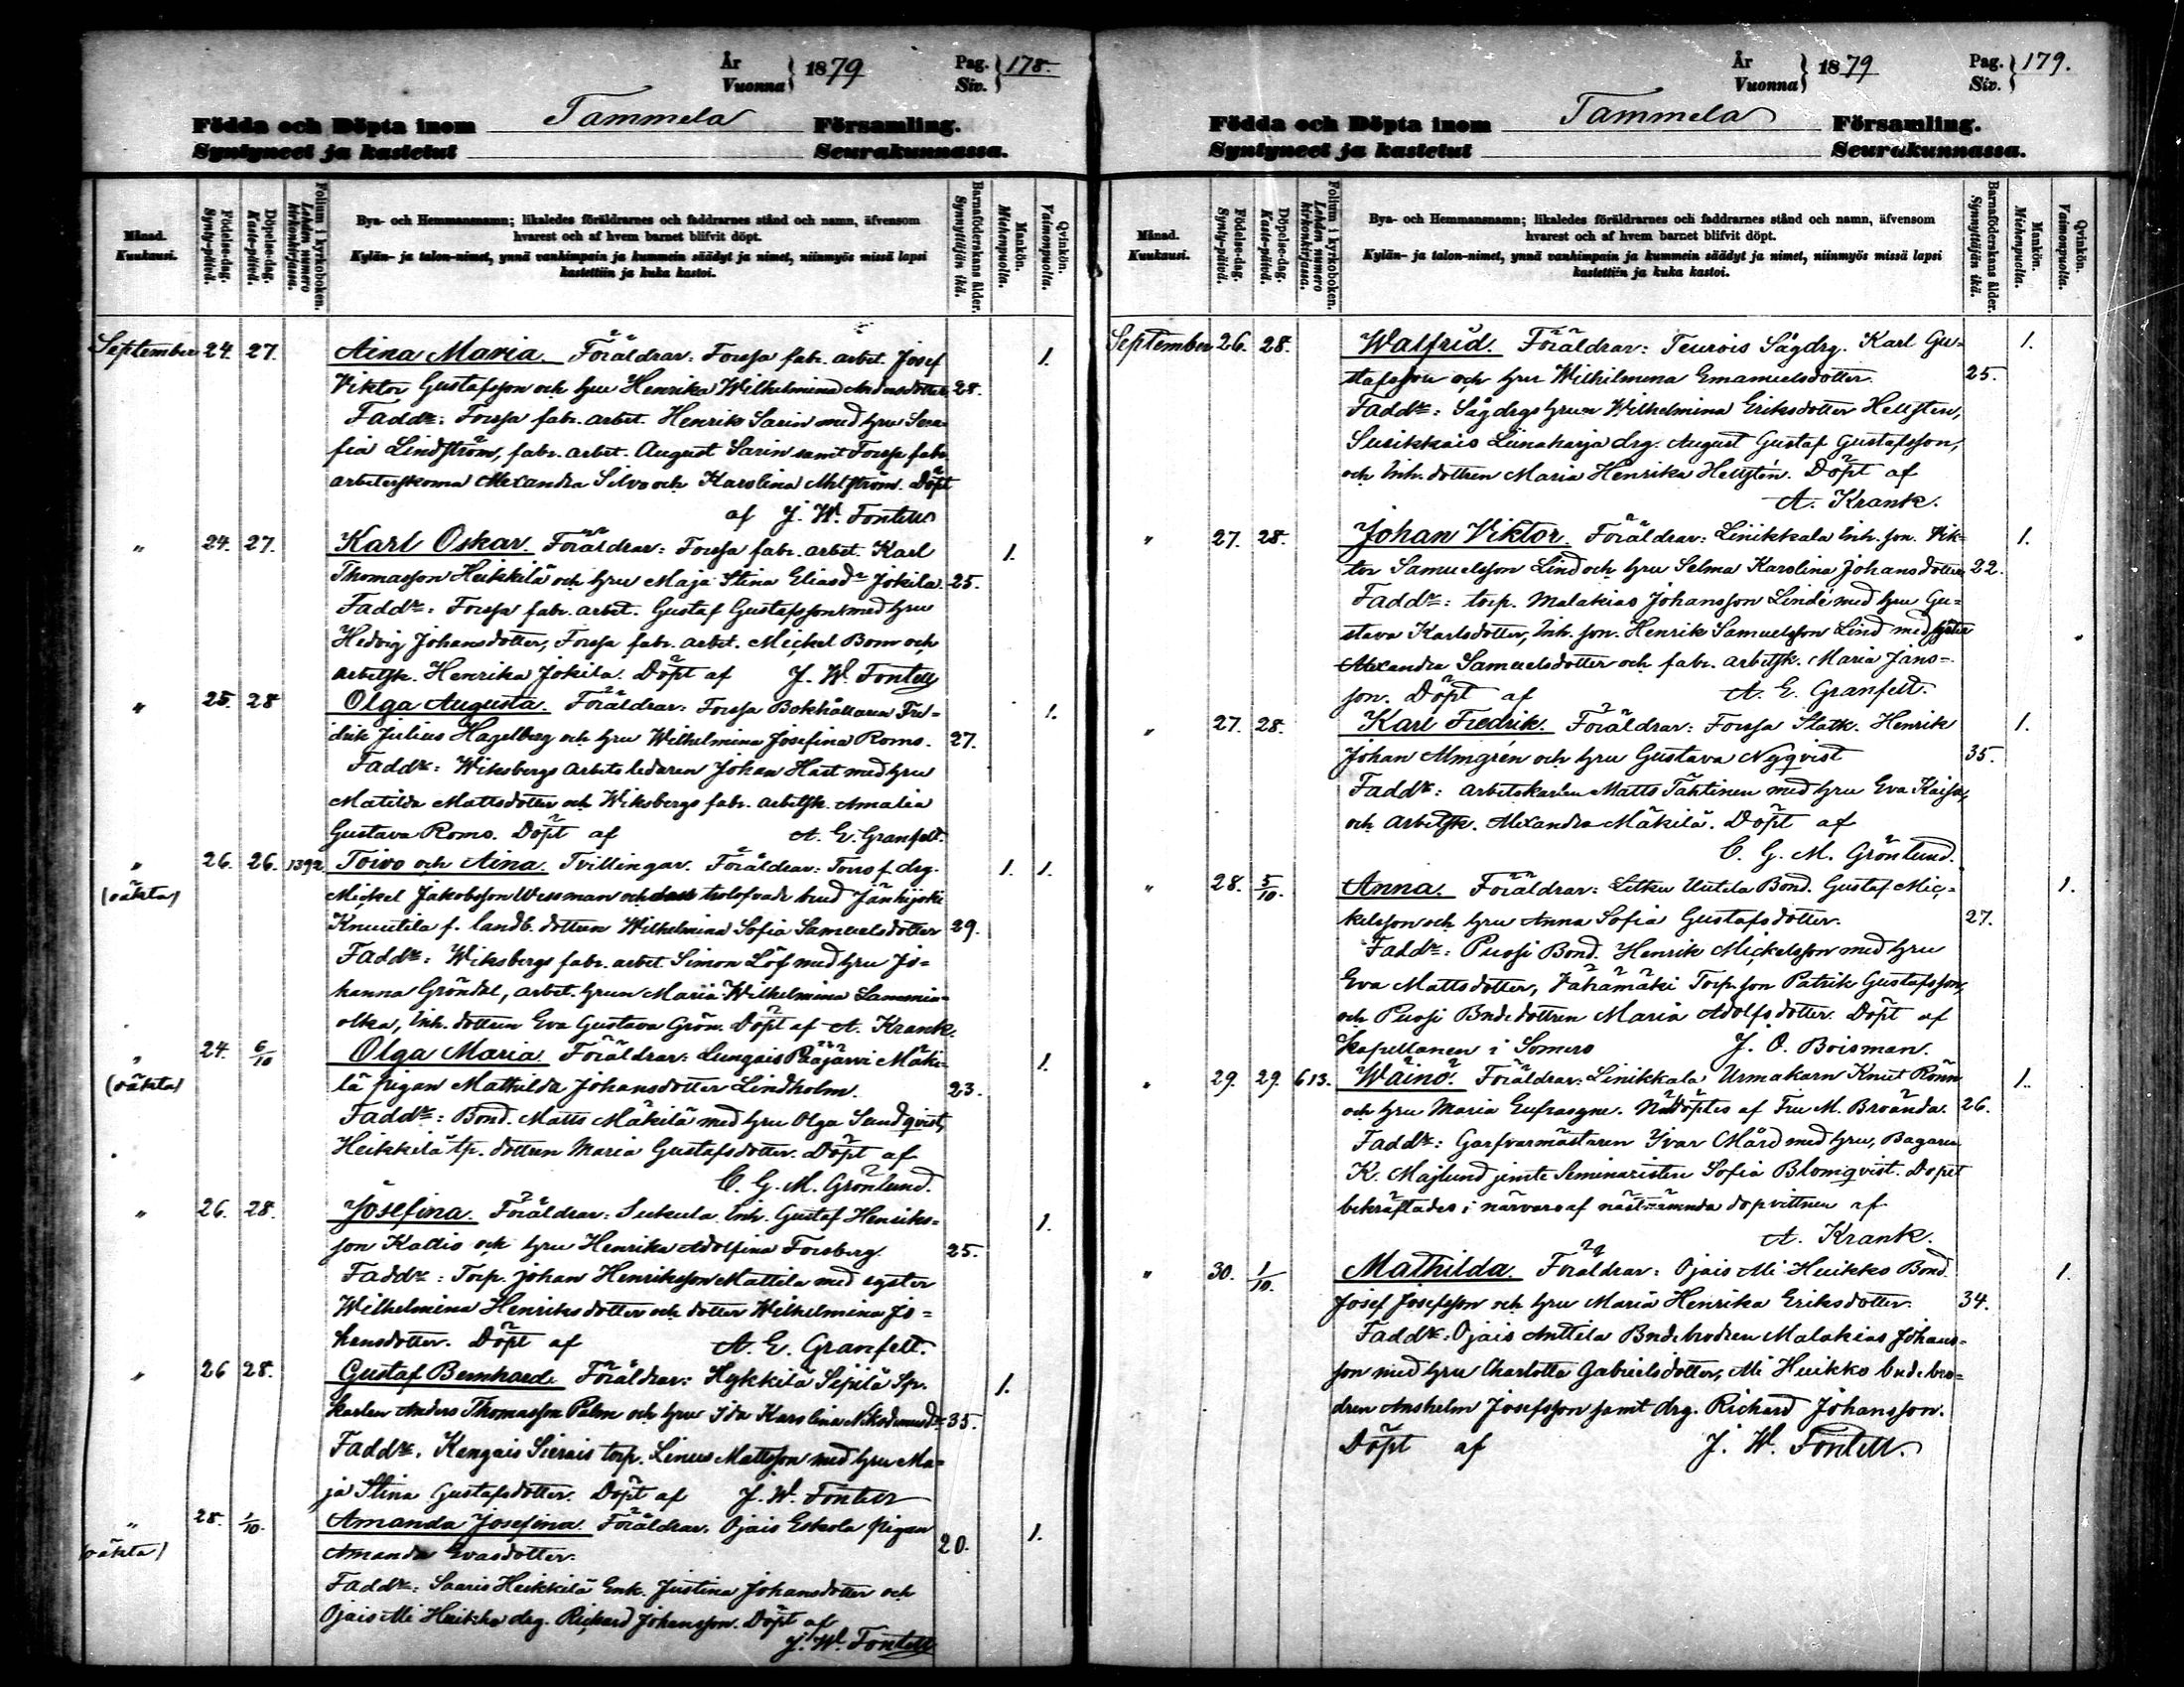 År
Vuonna } 1879 Pag.
Siv. } 178.
Födda och Döpta inom Tammela Församling.
Syntyneet ja kastetut Seurakunnassa.
Månad.
Kuukausi.
Födelse-dag.
Synty-päivä.
Döpelse-dag.
Kaste-päivä.
Folium i kyrkoboken.
Lehden numero
kirkonkirjassa.
Bya- och Hemmansnamn; likaledes föräldrarnes och faddrarnes stånd och namn, äfvensom
hvarest och af hvem barnet blifvit döpt.
Kylän- ja talon-nimet, ynnä vanhimpain ja kummein säädyt ja nimet, niinmyös missä lapsi
kastettiin ja kuka kastoi.
Barnaföderskans ålder.
Synnyttäjän ikä.
Mankön.
Miehenpuolta.
Qvinkön.
Vaimonpuolta.
September 24. 27. Aina Maria. Föräldrar: Forssa fabr. arbet. Josef 1.
Viktor Gustafsson och hru Henrika Wilhelmina Andersdotter 28.
Faddr: Forssa fabr. arbet. Henrik Sarin med hru Sera-
fia Lindström, fabr. arbet. August Sarin samt Forssa fabr.
arbeterskorna Alexandra Silvo och Karolina Ahlström. Döpt
af J. W. Fontell
" 24. 27. Karl Oskar. Föräldrar: Forssa fabr. arbet. Karl 1.
Thomasson Heikkilä och hru Maja Stina Eliasdr Jokila. 25.
Faddr: Forssa fabr. arbet. Gustaf Gustafsson med hru
Hedvig Johansdotter, Forssa fabr. arbet. Mickel Bom och
arbetsk. Henrika Jokila. Döpt af J. W. Fontell
" 25. 28 Olga Augusta. Föräldrar: Forssa Bokhållaren Fre- 1.
drik Julius Hagelberg och hru Wilhelmina Josefina Roms. 27.
Faddr: Wiksbergs arbets ledaren Johan Hast med hru
Matilda Mattsdotter och Wiksbergs fabr. arbetsk. Amalia
Gustava Roms. Döpt af A. E. Granfelt.
" 26. 26. 1392 Toivo och Aina. Tvillingar. Föräldrar: Torro f. drg. 1. 1.
(oäkta) Mickel Jakobsson Wessman och dess trolofvade brud Jänhijoki
Knuutila f. landb. dottren Wilhelmina Sofia Samuelsdotter 29.
Faddr: Wiksbergs fabr. arbet. Simon Löf med hru Jo-
hanna Gröndal, arbet. hrun Maria Wilhelmina Lammin-
olka, Inh. dottren Eva Gustava Grön. Döpt af A. Krank.
" 24. 6/10 Olga Maria. Föräldrar: Lungais Pääjärvi Mäki- 1.
(oäkta) lä pigan Mathilda Johansdotter Lindholm. 23.
Faddr: Bond. Matts Mäkilä med hru Olga Sundqvist,
Heikkilä tp. dottren Maria Gustafsdotter. Döpt af
C. G. M. Grönlund.
" 26. 28. Josefina. Föräldrar: Sukula Inh. Gustaf Henriks- 1.
son Kallio och hru Henrika Adolfina Forsberg. 25.
Faddr: Torp. Johan Henriksson Mattila med syster
Wilhelmina Henriksdotter och dotter Wilhelmina Jo-
hansdotter. Döpt af A. E. Granfelt.
" 26 28. Gustaf Bernhard. Föräldrar: Hykkilä Sepilä Sp. 1.
karlen Anders Thomasson Palm och hru Ida Karolina Nikodemusdr 35.
Faddr. Kengais Sierais torp. Linus Mattsson med hru Ma-
ja Stina Gustafsdotter. Döpt af J. W. Fontell
" 28. 1/10. Amanda Josefina. Föräldrar. Ojais Eskola pigan 1.
(oäkta) Amanda Evasdotter. 20.
Faddr: Saaris Heikkilä Enk. Justina Johansdotter och
Ojais Ali Huikko drg. Rickard Johansson. Döpt af
J. W. Fontell
År
Vuonna } 1879 Pag.
Siv. } 179.
Födda och Döpta inom Tammela Församling.
Syntyneet ja kastetut Seurakunnassa.
Månad.
Kuukausi.
Födelse-dag.
Synty-päivä.
Döpelse-dag.
Kaste-päivä.
Folium i kyrkoboken.
Lehden numero
kirkonkirjassa.
Bya- och Hemmansnamn; likaledes föräldrarnes och faddrarnes stånd och namn, äfvensom
hvarest och af hvem barnet blifvit döpt.
Kylän- ja talon-nimet, ynnä vanhimpain ja kummein säädyt ja nimet, niinmyös missä lapsi
kastettiin ja kuka kastoi.
Barnaföderskans ålder.
Synnyttäjän ikä.
Mankön.
Miehenpuolta.
Qvinkön.
Vaimonpuolta.
September 26. 28. Walfrid. Föräldrar: Teurois Sågdrg. Karl Gu- 1.
stafsson och hru Wilhelmina Emanuelsdotter. 25.
Faddr: Sågdrgs hrun Wilhelmina Eriksdotter Hellsten,
Susikkais Liinaharja drg. August Gustaf Gustafsson,
och Inh. dottren Maria Henrika Hellstén. Döpt af
A. Krank.
" 27. 28. Johan Viktor. Föräldrar: Linikkala Inh. son. Vik- 1.
tor Samuelsson Lind och hru Selma Karolina Johansdotter 22.
Faddr: torp. Malakias Johansson Lindé med hru Gu-
stava Karlsdotter, Inh. son. Henrik Samuelsson Lind med syster
Alexandra Samuelsdotter och fabr. arbetsk. Maria Jans-
son. Döpt af A. E. Granfelt.
" 27. 28. Karl Fredrik. Föräldrar: Forssa Statk. Henrik 1.
Johan Almgrén och hru Gustava Nyqvist 35.
Faddr: arbetskarlen Matts Tähtinen med hru Eva Kaisa,
och arbetsk. Alexandra Mäkilä. Döpt af
C. G. M. Grönlund.
" 28. 5/10. Anna. Föräldrar: Letku Uutela Bond. Gustaf Mic- 1.
kelsson och hru Anna Sofia Gustafsdotter. 27.
Faddr: Puosi Bond. Henrik Mickelsson med hru
Eva Mattsdotter, Vahämäki Torp. son Patrik Gustafsson,
och Puosi Bndedottren Maria Adolfsdotter. Döpt af
Kapellanen i Somero J. O. Boisman.
" 29. 29. 613. Wäinö. Föräldrar: Linikkala Urmakarn Knut Rönn 1.
och hru Maria Eufrasyne. Nöddöptes af Fru M. Broända. 26.
Faddr: Garfvarmästaren Yvar Mård med hru, Bagaren
K. Majlund jemte Seminaristen Sofia Blomqvist. Dopet
bekräftades i närvaro af nästnämnda dopvittnen af
A. Krank.
" 30. 1/10. Mathilda. Föräldrar: Ojais Ali Huikko Bond. 1.
Josef Josefsson och hru Maria Henrika Eriksdotter. 34.
Faddr: Ojais Anttila Bndebrodren Malakias Johans-
son med hru Charlotta Gabrielsdotter, Ali Huikko bndebro-
dren Anshelm Josefsson samt drg. Rickard Johansson.
Döpt af J. W. Fontell.